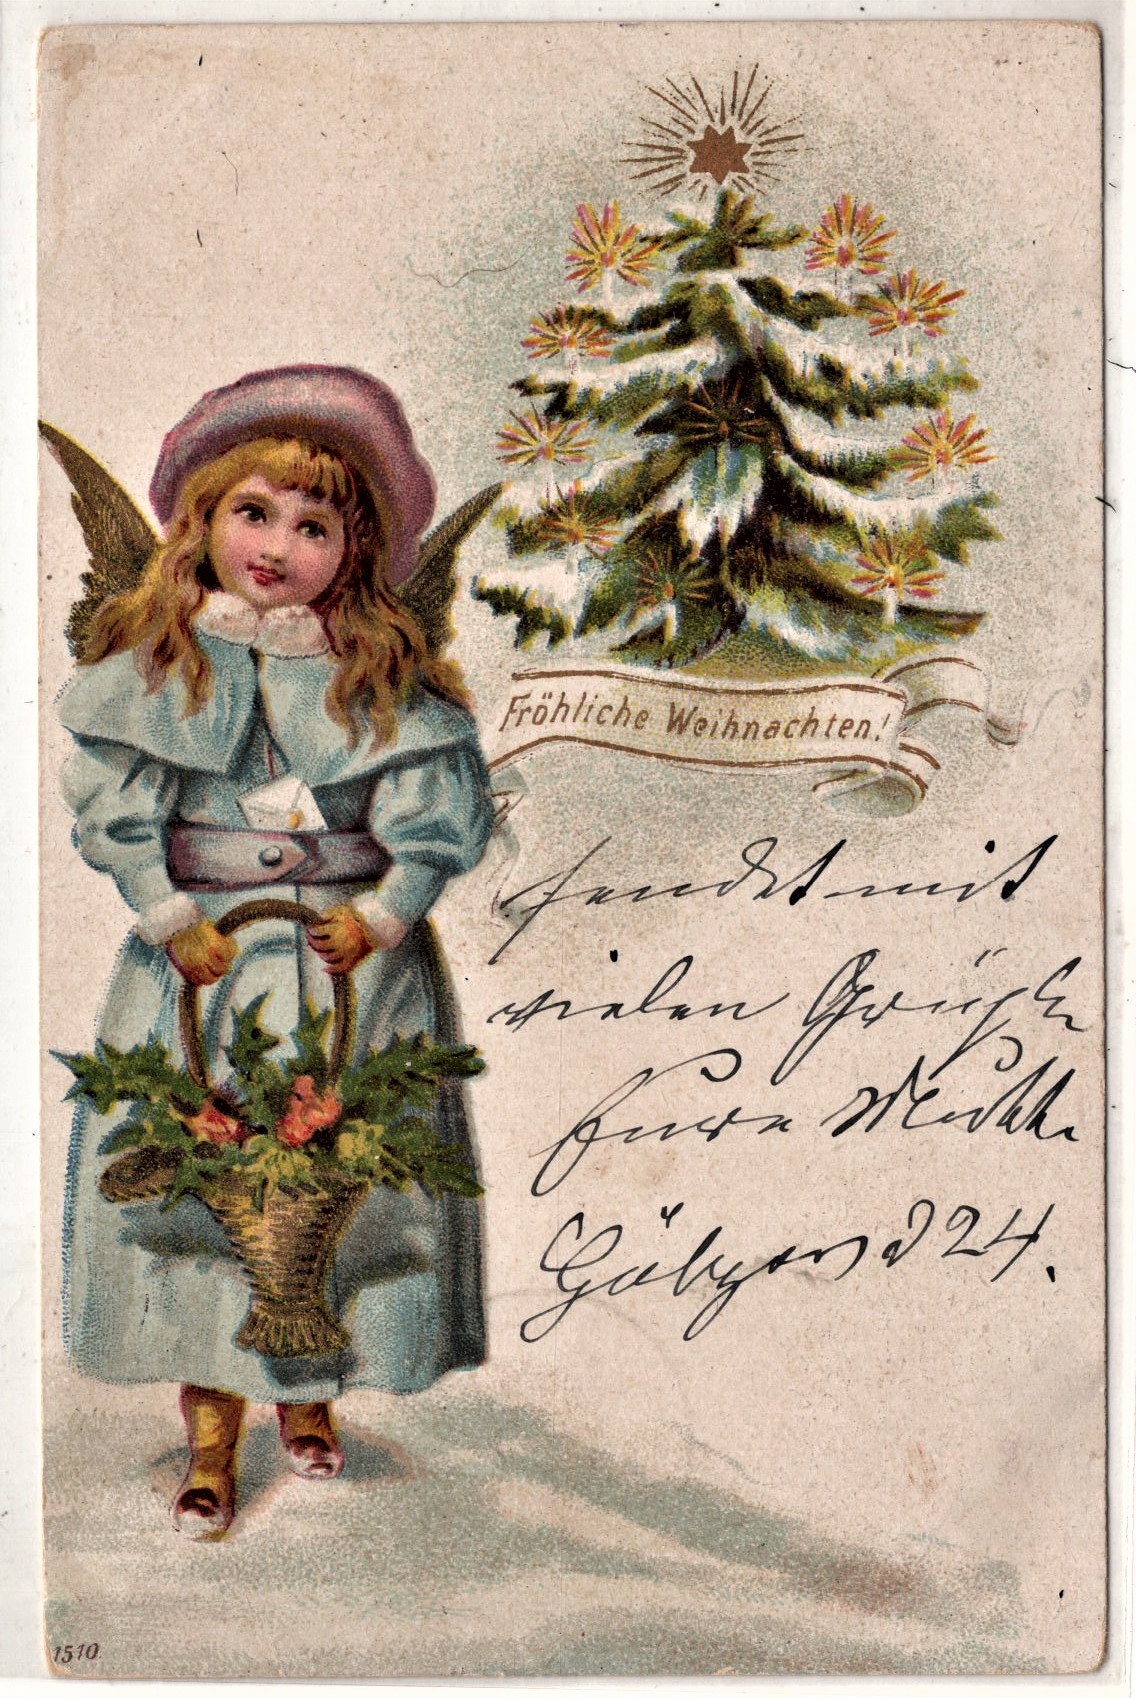 Fröhliche Weihnachten!
sendet mit
vielen Grüßen
Eure Mutter
d 24.
1510